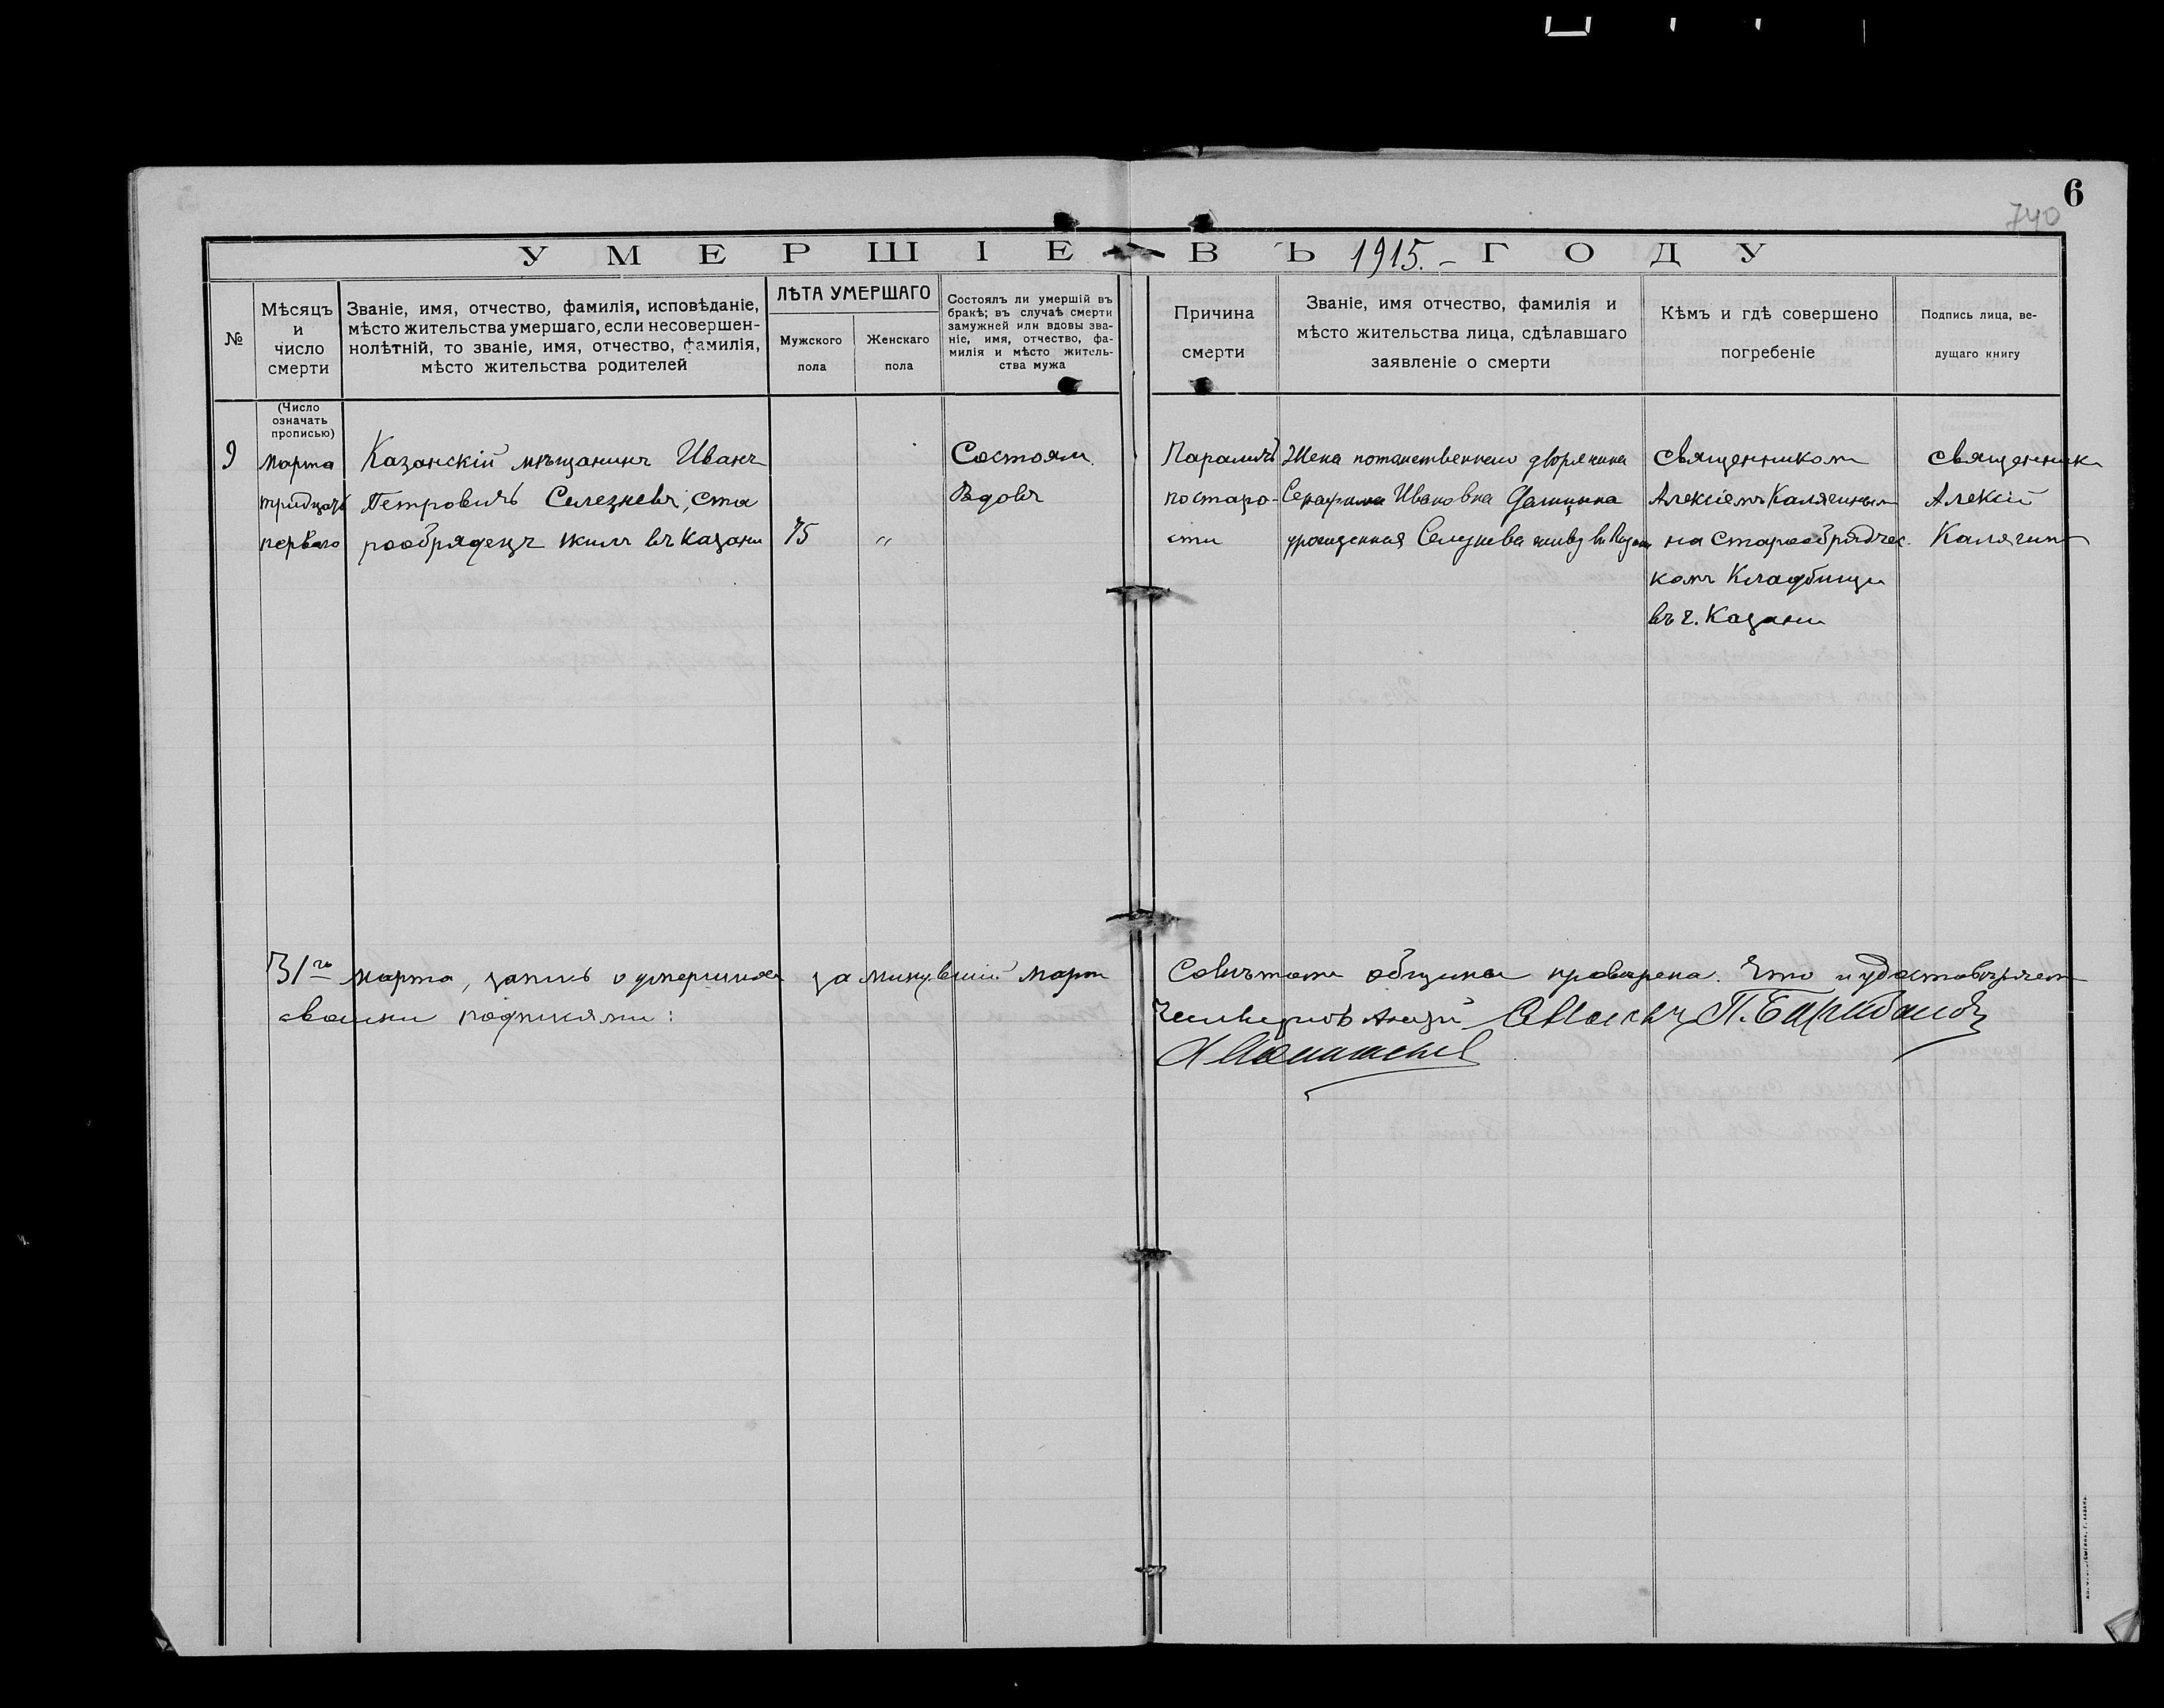 6
740
УМЕРШІЕ ВЪ 1915.- ГОДУ
№
Мѣсяцъ
и
число
смерти
Званіе, имя, отчество, фамилія, исповѣданіе,
мѣсто жительства умершаго, если несовершен-
нолѣтній, то званіе, имя, отчество, фамилія,
мѣсто жительства родителей
ЛѢТА УМЕРШАГО
Мужского
пола
Женскаго
пола
Состоялъ ли умершій въ
бракѣ; въ случаѣ смерти
замужней или вдовы зва-
ніе, имя, отчество, фа-
милія и мѣсто житель-
ства мужа
Причина
смерти
Званіе, имя отчество, фамилія и
мѣсто жительства лица, сдѣлавшаго
заявленіе о смерти
Кѣмъ и гдѣ совершено
погребеніе
Подпись лица, ве-
дущаго книгу
(Число
означать
прописью)
9
Марта
тридцать
перваго
Казанскій мѣщанинъ Иванъ
Петровичъ Селезневъ, ста
рообрядецъ жилъ въ Казани
75
"
Состоял
Вдовъ
Параличъ
по старо-
сти
Жена потомственнаго дворянина
Серафима Ивановна
урожденная Селезнева живу въ Казани
Священникомъ
Алексіемъ Калягинымъ
на старообрядчес
комъ Кладбищи
въ г. Казани
Священникъ
Алексій
Калягинъ
31го марта, запись о умершихъ за минувшій мартъ Совѣтомъ общины проверена. Что и удостоверяем
своими подписями: